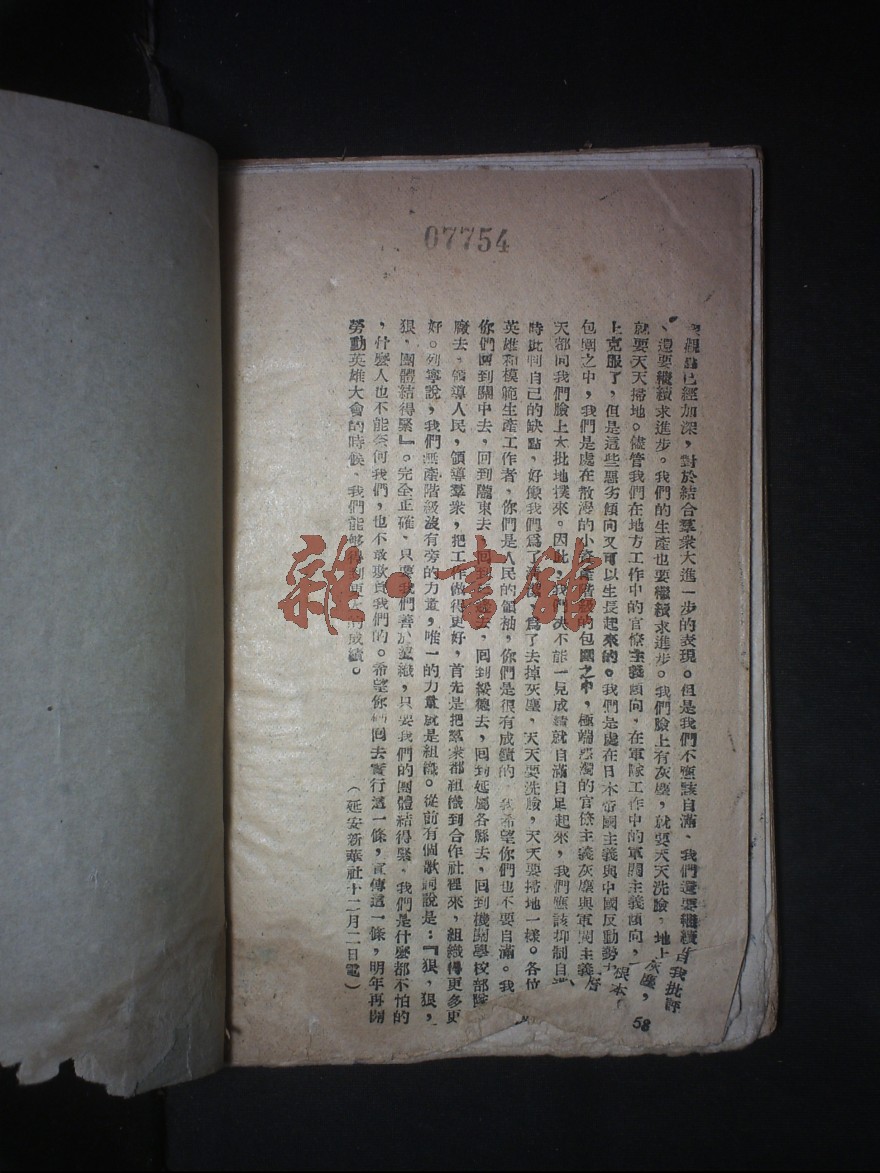 07754
觀點已經加深，對於結合羣衆大進一步的表現。但是我們不應該自滿，我們還要繼續自我批評
、還要繼續求進步。我們的生產也要繼續求進步。我們臉上有灰塵，就要天天洗臉，地上灰塵，
就要天天掃地。儘管我們在地方工作中的官僚主義傾向，在軍隊工作中的軍閥主義傾向，根本
上克服了，但是這些惡劣傾向又可以生長起來的。我們是處在日本帝國主義與中國反動勢力
包圍之中，我們是處在散漫的小資產階級的包圍之中，極端惡濁的官僚主義灰塵與軍閥主義
天都向我們臉上大批地撲來。因此，我們決不能一見成績就自滿自足起來，我們應該抑制自
時批判自己的缺點，好像我們爲了清潔，爲了去掉灰塵，天天要洗臉，天天要掃地一樣。各位
英雄和模範生產工作者，你們是人民的領袖，你們是很有成績的，我希望你們也不要自滿。我
你們回到關中去，回到隴東去，回到三邊去，回到綏德去，回到延屬各縣去，回到機關學校部隊
廠去，領導人民，領導羣衆，把工作做得更好，首先是把羣衆都組織到合作社裡來，組織得更多更
好。列寧說，我們無產階級沒有旁的力量，唯一的力量就是組織。從前有個歌詞說是：『狠，狠，
狠，團體結得緊』。完全正確，只要我們善於組織，只要我們的團體結得緊，我們是什麼都不怕的
，什麼人也不能奈何我們，也不敢欺負我們的。希望你們回去實行這一條，宣傳這一條，明年再開
勞動英雄大會的時候，我們能够得到更大的成績。
（延安新華社十二月二日電）
58
雜·書館